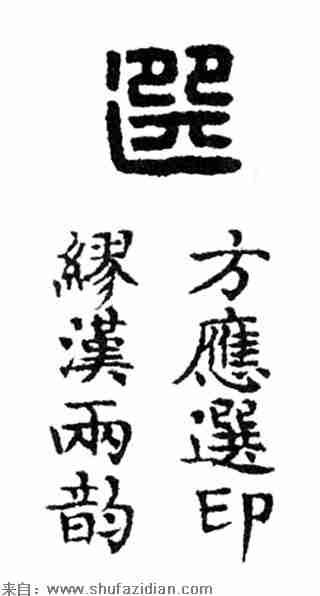 選
方應選印
繆漢兩韵
来自：www.shufazidian.com